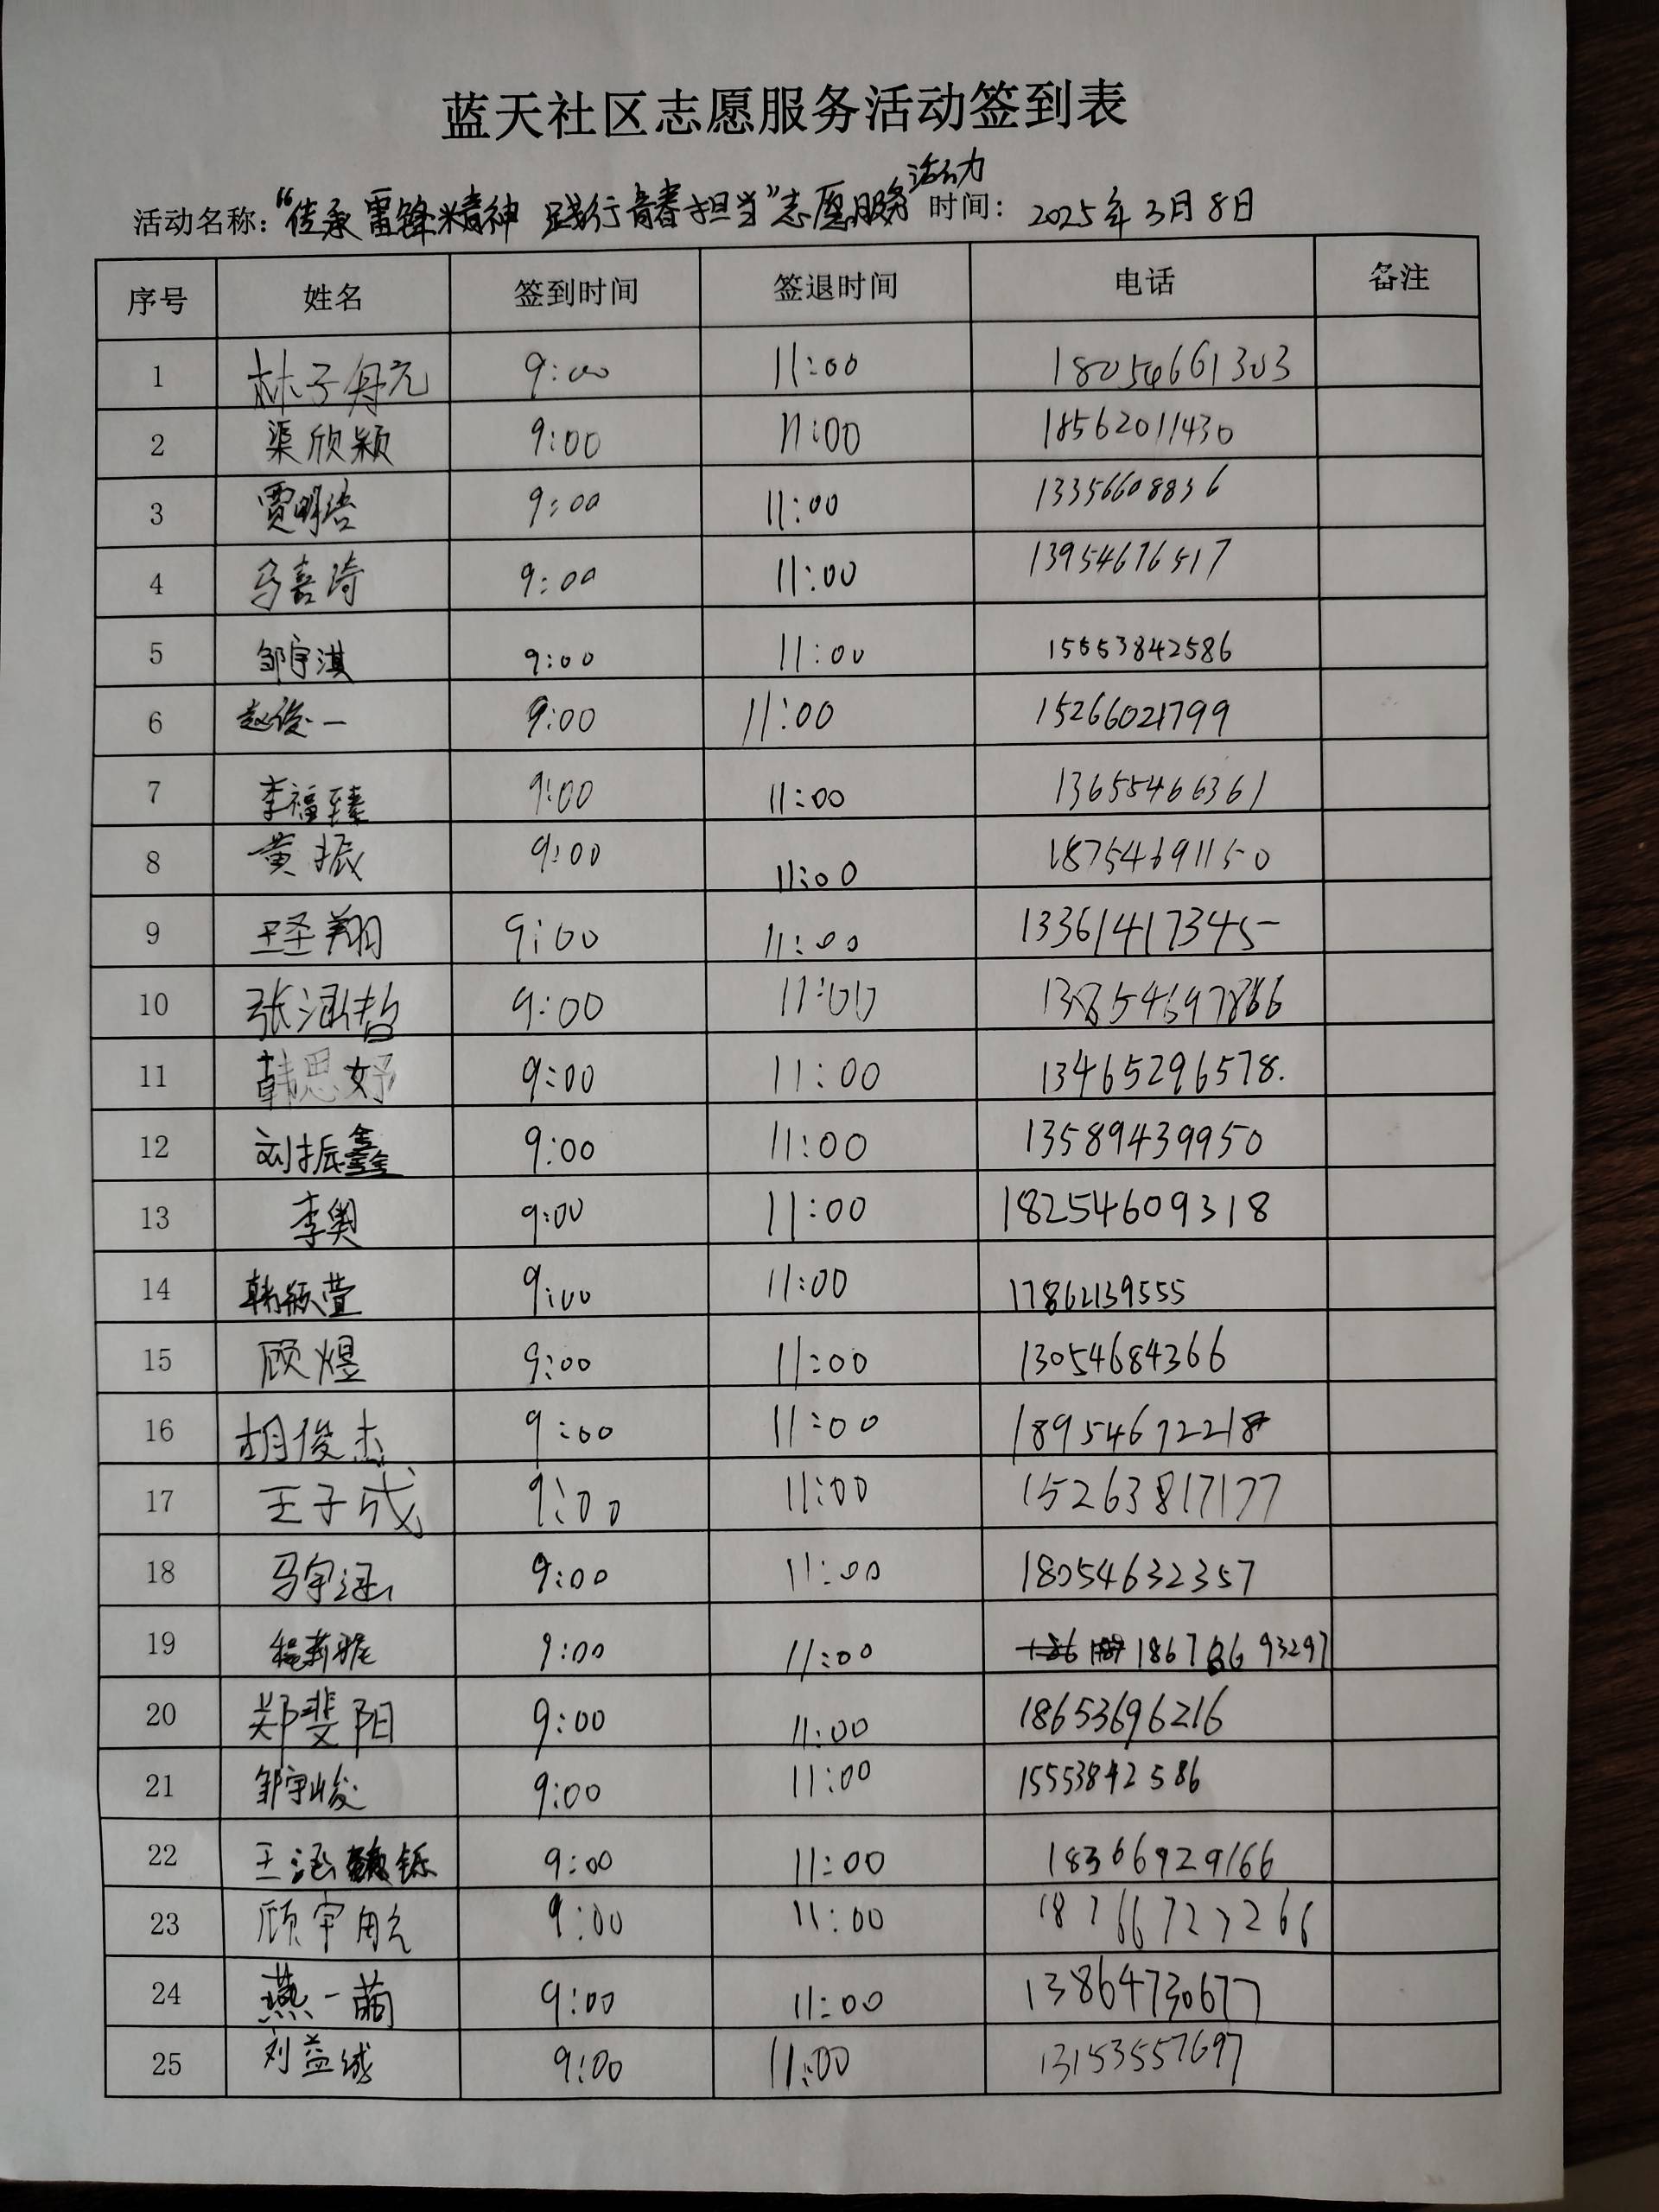 蓝天社区志愿服务活动签到表
活动名称：“传承雷锋精神 践行青春担当”志愿服务活动 时间： 2025年3月8日
序号 姓名 签到时间 签退时间 电话 备注
1 林子舟元 9:00 11:00 18054661303
2 渠欣颖 9:00 11:00 18562011430
3 贾明浩 9:00 11:00 13356608836
4 马喜琦 9:00 11:00 13954676517
5 邹宇淇 9:00 11:00 15553842586
6 赵俊一 9:00 11:00 15266021799
7 李福臻 9:00 11:00 13655466361
8 黄振 9:00 11:00 18754691150
9 王圣翔 9:00 11:00 13361417345
10 张涵哲 9:00 11:00 13854697866
11 韩思妤 9:00 11:00 13465296578.
12 刘振鑫 9:00 11:00 13589439950
13 李奥 9:00 11:00 18254609318
14 韩颖萱 9:00 11:00 17862139555
15 顾煜 9:00 11:00 13054684366
16 胡俊杰 9:00 11:00 18954672218
17 王子成 9:00 11:00 15263817177
18 马宇涵 9:00 11:00 18054632357
19 程莉雅 9:00 11:00 18678693297
20 郑斐阳 9:00 11:00 18653696216
21 邹宇峻 9:00 11:00 15553842586
22 王涵铄 9:00 11:00 18366929166
23 顾宇 9:00 11:00 18766727266
24 燕一萌 9:00 11:00 13864730677
25 刘益 9:00 11:00 13153557697